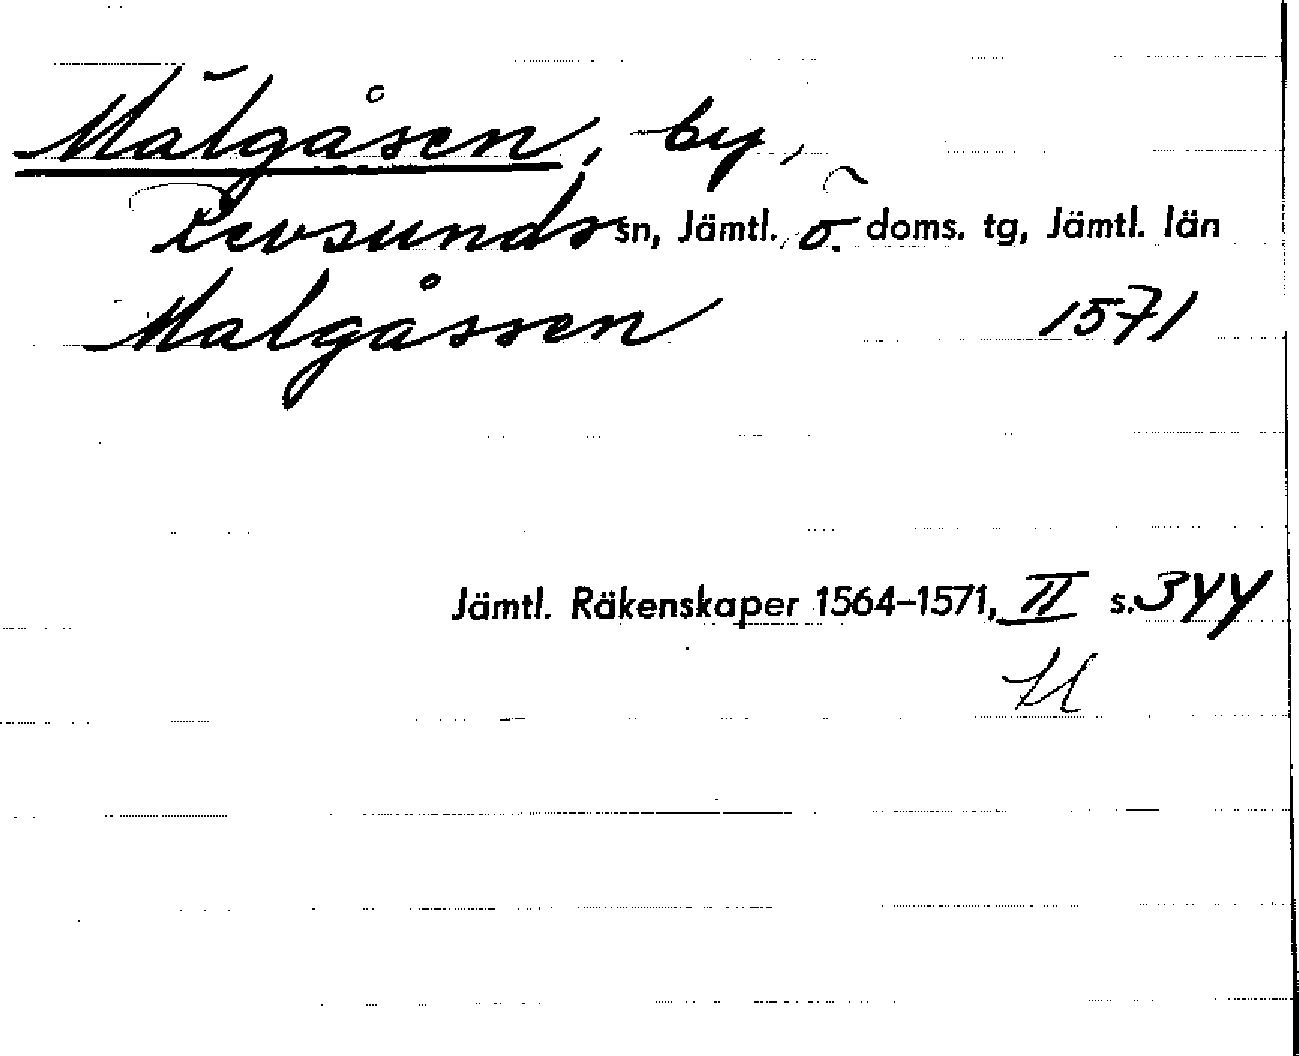 Mälgåsen, by,
Revsunds sn, Jämtl. ö. doms. tg, Jämtl. län
Malgåssen 1571
Jämtl. Räkenskaper 1564-1571, II s. 344